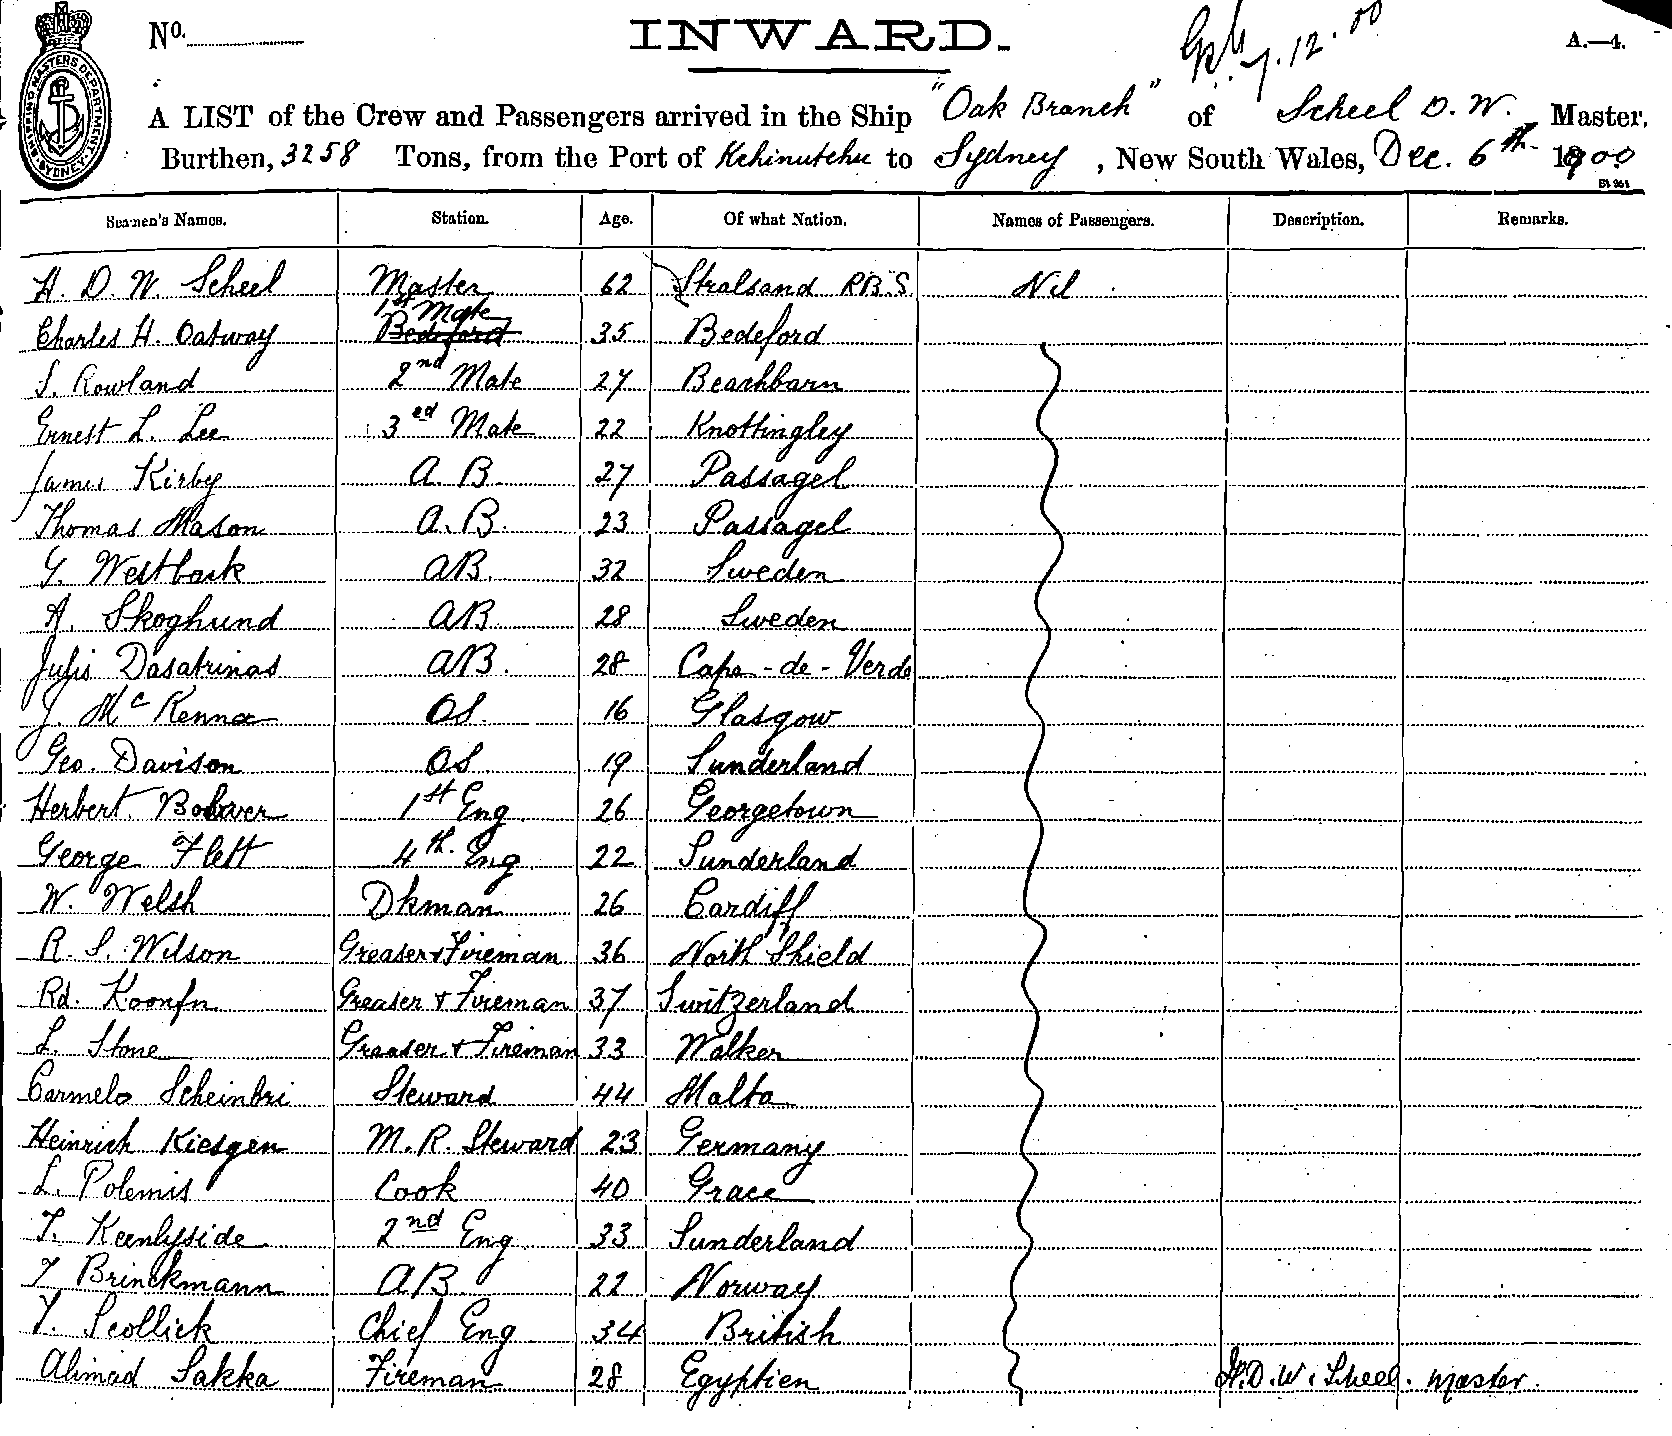 No. INWARD. 7.12.00 A.—4.
SHIPPING MASTERS DEPARTMENT SYDNEY
A LIST of the Crew and Passengers arrived in the Ship "Oak Branch" of Scheel D. W. Master,
Burthen, 3258 Tons, from the Port of Kchinutchu to Sydney, New South Wales, Dec. 6th 1900
Seamen's Names. Station. Age. Of what Nation. Names of Passengers. Description. Remarks.
H. D. W. Scheel Master 62 Stralsand R.B.S. Nil
1st Mate
Charles H. Oatway Bedeford 35 Bedeford
S. Rowland 2nd Mate 27 Beachbarn
Ernest L. Lee 3ed Mate 22 Knottingley
James Kirby A. B. 27 Passagel
Thomas Mason A. B. 23 Passagel
G. Westbark AB. 32 Sweden
A. Skoghund AB 28 Sweden
Julis Dasatrinas AB. 28 Cape-de-Verde
J. McKenna OS. 16 Glasgow
Geo. Davison OS 19 Sunderland
Herbert 1st Eng 26 Georgetown
George Flett 4th Eng 22 Sunderland
W. Welsh Dkman 26 Cardiff
R. S. Wilson Greaser & Fireman 36 North Shield
Rd. Koonfn Greaser & Fireman 37 Switzerland
L. Stone Greaser & Fireman 33 Walker
Carmelo Scheinbri Steward 44 Malta
Heinrich Kiesgen M. R. Steward 23 Germany
L. Polemis Cook 40 Grace
T. Keenlyside 2nd Eng 33 Sunderland
T Brinckmann AB 22 Norway
T. Scollick Chief Eng 34 British
Ahmad Sakka Fireman 28 Egyptien H. D. W. Scheel. Master.